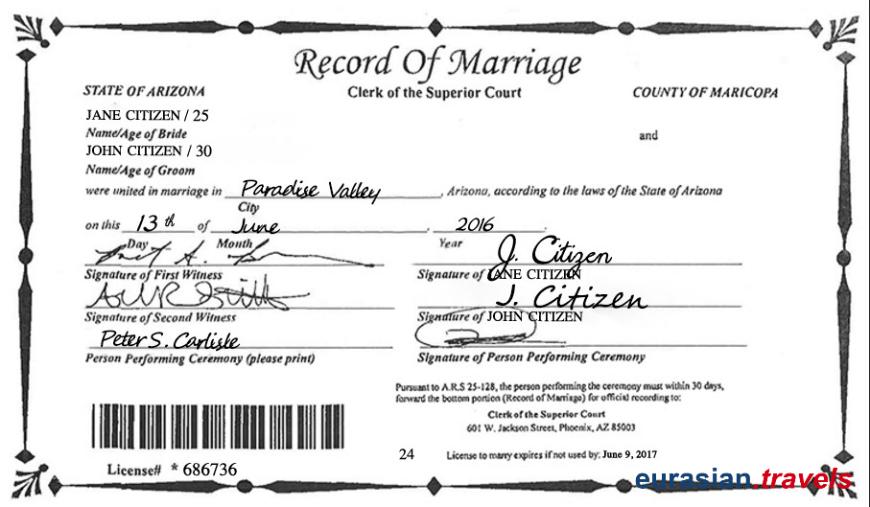 Record Of Marriage
STATE OF ARIZONA
Clerk of the Superior Court
COUNTY OF MARICOPA
JANE CITIZEN / 25
Name/Age of Bride
and
JOHN CITIZEN / 30
Name/Age of Groom
were united in marriage in Paradise Valley, Arizona, according to the laws of the State of Arizona
City
on this 13th of June, 2016.
Day Month Year
J. Citizen
Signature of First Witness
Signature of JANE CITIZEN
J. Citizen
Signature of Second Witness
Signature of JOHN CITIZEN
Peter S. Carlisle
Person Performing Ceremony (please print)
Signature of Person Performing Ceremony
Pursuant to A.R.S 25-128, the person performing the ceremony must within 30 days,
forward the bottom portion (Record of Marriage) for official recording to:
Clerk of the Superior Court
601 W. Jackson Street, Phoenix, AZ 85003
24
License to marry expires if not used by: June 9, 2017
License# * 686736
eurasian.travels